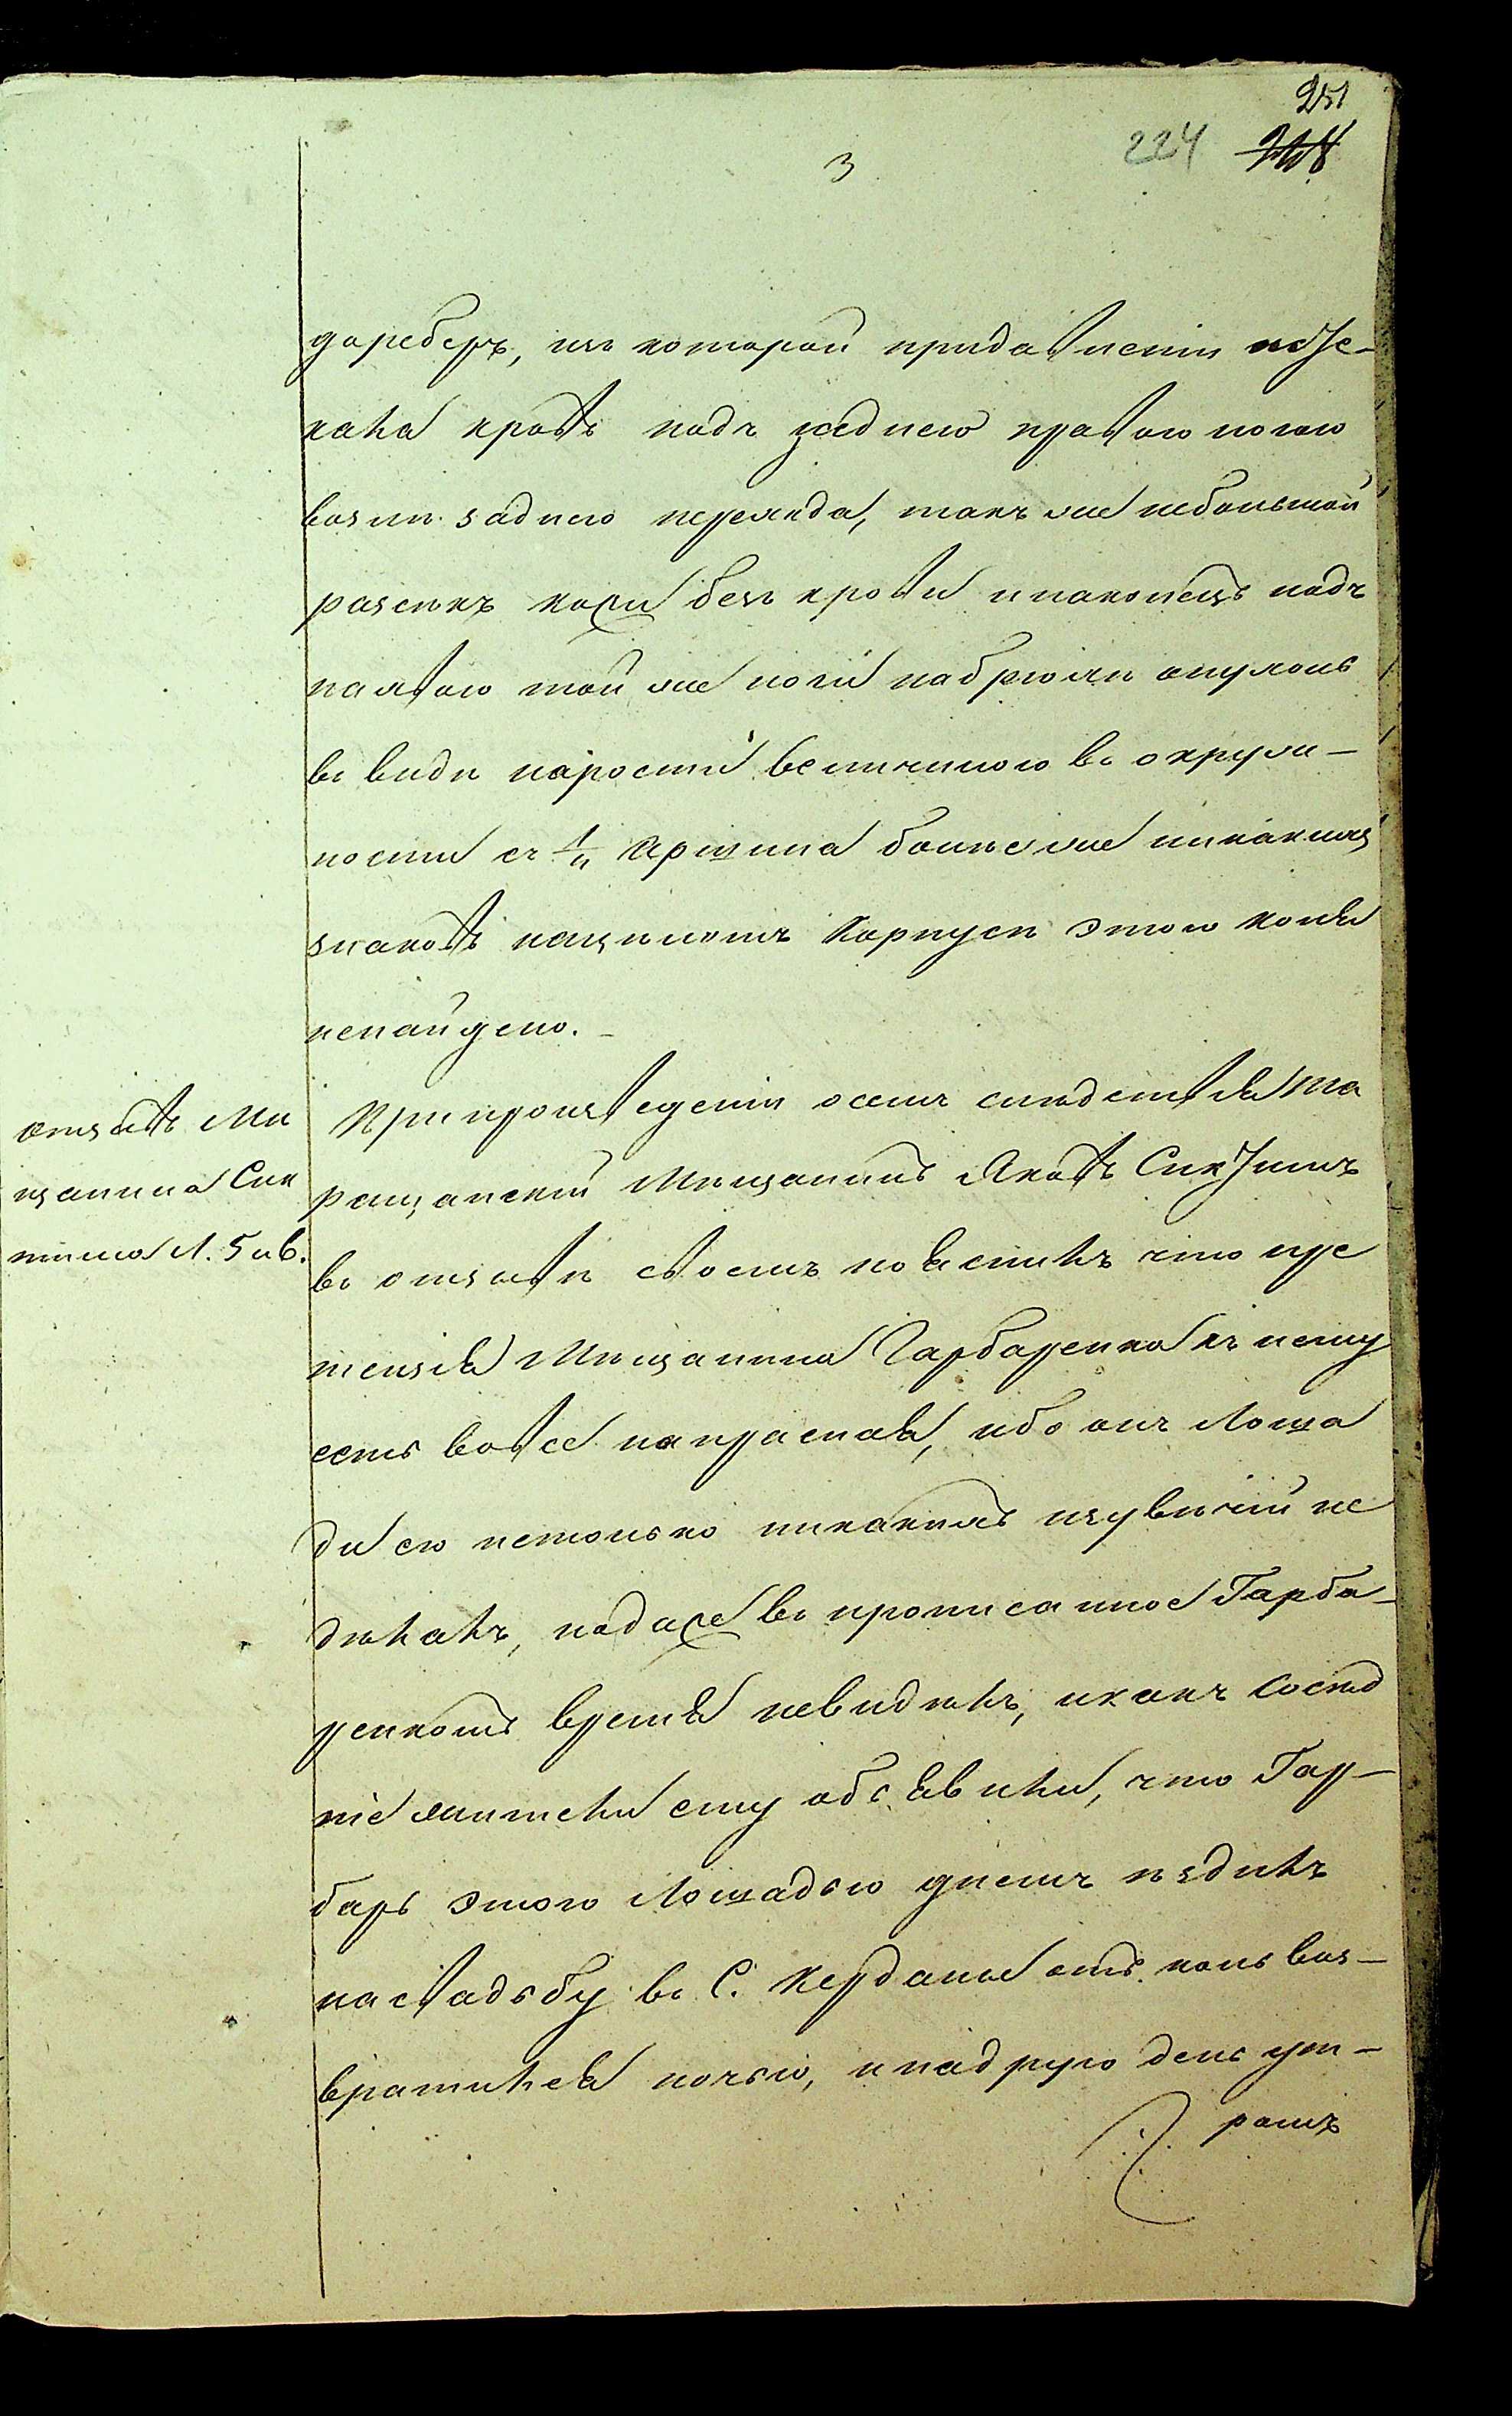 251
224 248
3
до реберъ, изъ которой придавленіи исте-
кала кровь подъ заднею правою ногою
возлѣ задняго перехода, такъ же небольшой
разсѣкъ кожи безъ крови и наконецъ подъ
пахвою той же ноги на брюхѣ опухоль
въ видѣ нарости величиною въ окруж-
ности съ ¼ Аршина болѣе же никакихъ
знаковъ на цѣломъ корпусѣ этого коня
ненайдено.
Отзывъ Мѣ
щанина Сик
тина Л. 5 и 6.
При произведеніи о семъ слѣдствія Та
ращанскій Мѣщанинъ Яковъ
въ отзывѣ своемъ пояснилъ что пре
тензія Мѣщанина Гарбаренка къ нему
есть вовсе напрасная, ибо онъ Лоша
ди его нетолько никакихъ изувѣчій не
дѣлалъ, но даже въ прописанное Гарба-
ренкомъ время невидѣлъ, и какъ сосѣд
ніе жители ему объявили, что Гар-
барь этою Лошадью днемъ ѣздилъ
на свадьбу въ С. Керданы отъ коль воз-
вратился ночью, и на другой день ут-
ромъ